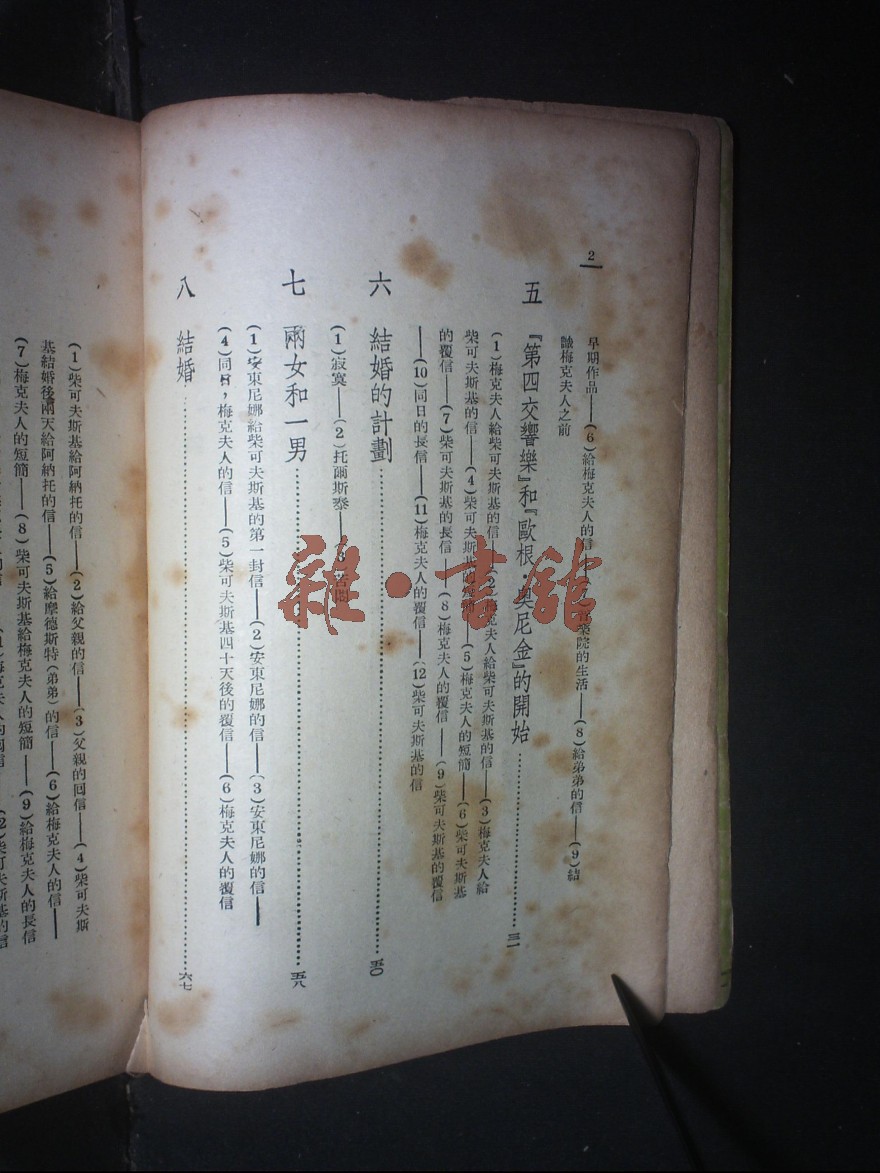 2
早期作品——(6)給梅克夫人的信 音樂院的生活——(8)給弟弟的信——(9)結
識梅克夫人之前
五 『第四交響樂』和『歐根·奧尼金』的開始 三一
(1)梅克夫人給柴可夫斯基的信——(2)梅克夫人給柴可夫斯基的信——(3)梅克夫人給
柴可夫斯基的信——(4)柴可夫斯基的短簡——(5)梅克夫人的短簡——(6)柴可夫斯基
的覆信——(7)柴可夫斯基的長信——(8)梅克夫人的覆信——(9)柴可夫斯基的覆信
——(10)同日的長信——(11)梅克夫人的覆信——(12)柴可夫斯基的信
六 結婚的計劃 五〇
(1)寂寞——(2)托爾斯泰——(3)苦悶
七 兩女和一男 五八
(1)安東尼娜給柴可夫斯基的第一封信——(2)安東尼娜的信——(3)安東尼娜的信——
(4)同日,梅克夫人的信——(5)柴可夫斯基四十天後的覆信——(6)梅克夫人的覆信
八 結婚 六七
(1)柴可夫斯基給阿納托的信——(2)給父親的信——(3)父親的囘信——(4)柴可夫斯
基結婚後兩天給阿納托的信——(5)給摩德斯特(弟弟)的信——(6)給梅克夫人的信——
(7)梅克夫人的短簡——(8)柴可夫斯基給梅克夫人的短簡——(9)給梅克夫人的長信
雜·書館